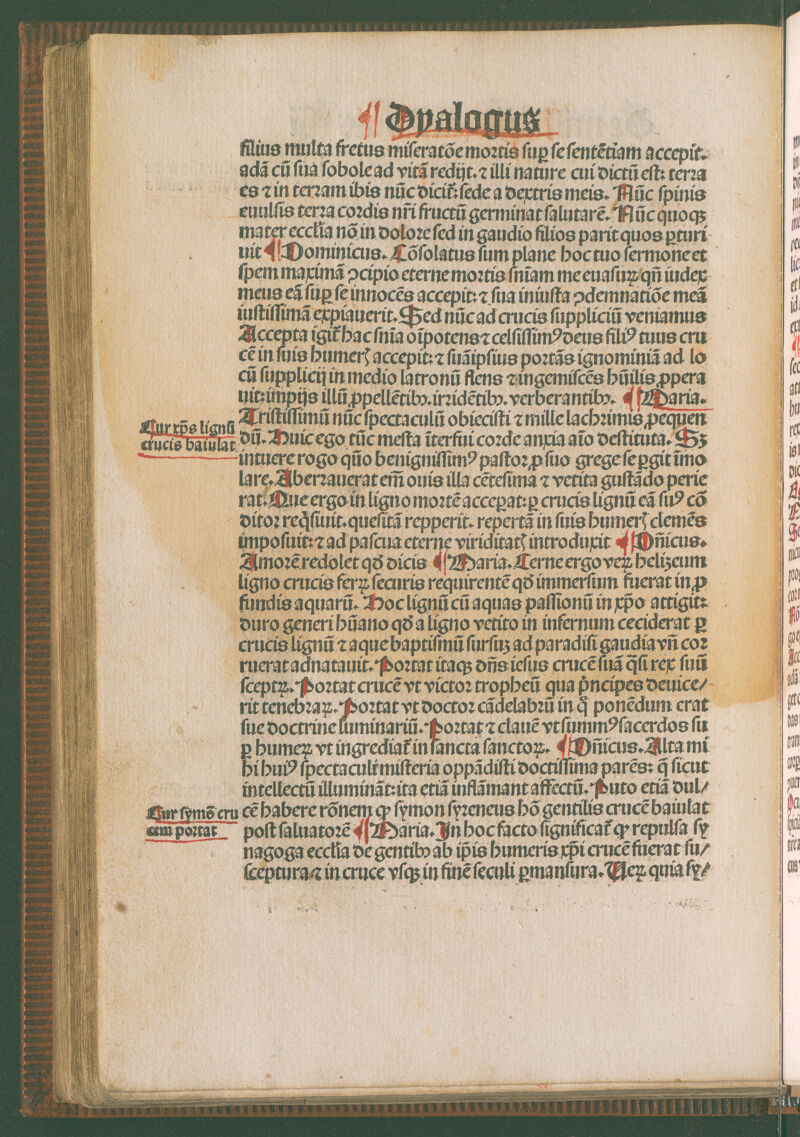 ¶ Dyalogus
filius multa fretus miseratõe mortis sup se sentẽtiam accepit.
adã cũ sua sobole ad vitã redijt. ⁊ illi nature cui dictũ est: terra
es ⁊ in terram ibis nũc dicit̃: sede a dextris meis. Nũc spinis
euulsis terra cordis nr̃i fructũ germinat salutarẽ. Nũc quoqꝫ
mater eccl̃ia nõ in dolore sed in gaudio filios parit quos ꝑturi
uit ¶ Dominicus. Cõsolatus sum plane hoc tuo sermone et
spem maximã ꝯcipio eterne mortis sn̄iam me euasurꝝ qñ iudex
meus eã sup se innocẽs accepit: ⁊ sua iniusta ꝯdemnatiõe meã
iustissimã expiauerit. Sed nũc ad crucis suppliciũ veniamus
Accepta igit̃ hac sn̄ia oĩpotens ⁊ celsissimꝰ deus filiꝰ tuus cru
cẽ in suis humerꝭ accepit: ⁊ suãipsius portãs ignominiã ad lo
cũ supplicij in medio latronũ flens ⁊ ingemiscẽs hũilis ꝓpera
uit: impijs illũ ꝓpellẽtibꝰ. irridẽtibꝰ. verberantibꝰ. ¶ Maria.
Tristissimũ nũc spectaculũ obiecisti ⁊ mille lachrimis ꝓsequen
Cur xp̃s lignũ
crucis baiulat
dũ. Huic ego tũc mesta ĩterfui corde anxia aĩo destituta. Sꝫ
intuere rogo quõ benignissimꝰ pastor ꝓ suo grege se ꝑgit ĩmo
lare. Aberrauerat em̃ ouis illa cẽtesima ⁊ vetita gustãdo perie
rat. Que ergo in ligno mortẽ acceꝑat: ꝑ crucis lignũ eã suꝰ cõ
ditor reqͥsiuit. quesitã repperit. repertã in suis humerꝭ clemẽs
imposuit: ⁊ ad pascua eterne viriditatꝭ introduxit ¶ Dñicus.
Amorẽ redolet qd̃ dicis ¶ Maria. Cerne ergo verꝝ helizeum
ligno crucis ferꝝ securis requirentẽ qd̃ immersum fuerat in ꝓ
fundis aquarũ. Hoc lignũ cũ aquas passionũ in xp̃o attigit:
duro generi hũano qd̃ a ligno vetito in infernum ceciderat ꝑ
crucis lignũ ⁊ aque baptismũ sursuꝫ ad paradisi gaudia vñ cor
ruerat adnatauit. Portat itaqꝫ dñs iesus crucẽ suã qͣsi rex suũ
sceptꝝ. Portat crucẽ vt victor tropheũ qua pͥncipes deuice/
rit tenebraꝝ. Portat vt doctor cãdelabrũ in qͦ ponẽdum erat
sue doctrine luminariũ. Portat ⁊ clauẽ vt summꝰ sacerdos su
ꝑ humeꝝ vt ingrediat̃ in sancta sanctoꝝ. ¶ Dñicus. Alta mi
hi huiꝰ spectaculi misteria oppãdisti doctissima parẽs: q̃ sicut
intellectũ illuminãt: ita etiã inflãmant affectũ. Puto etiã dul/
Cur symõ cru
cem portat
cẽ habere rõnem ꝙ symon syreneus hõ gentilis crucẽ baiulat
post saluatorẽ ¶ Maria. In hoc facto significat̃ ꝙ repulsa sy
nagoga eccl̃ia de gentibꝰ ab ip̃is humeris xp̃i crucẽ fuerat su/
sceptura ⁊ in cruce vsqꝫ in finẽ seculi ꝑmansura. Verꝝ quia sy/